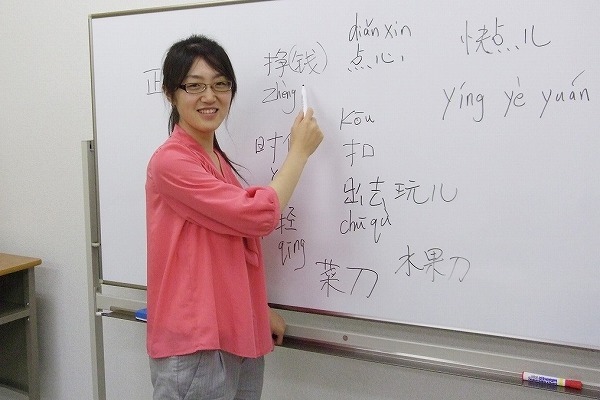 正
挣(钱)
zhèng
diǎn xīn
点心
快点儿
yíng yè yuán
kōu
扣
出去玩儿
chū qù
qīng
菜刀
水果刀